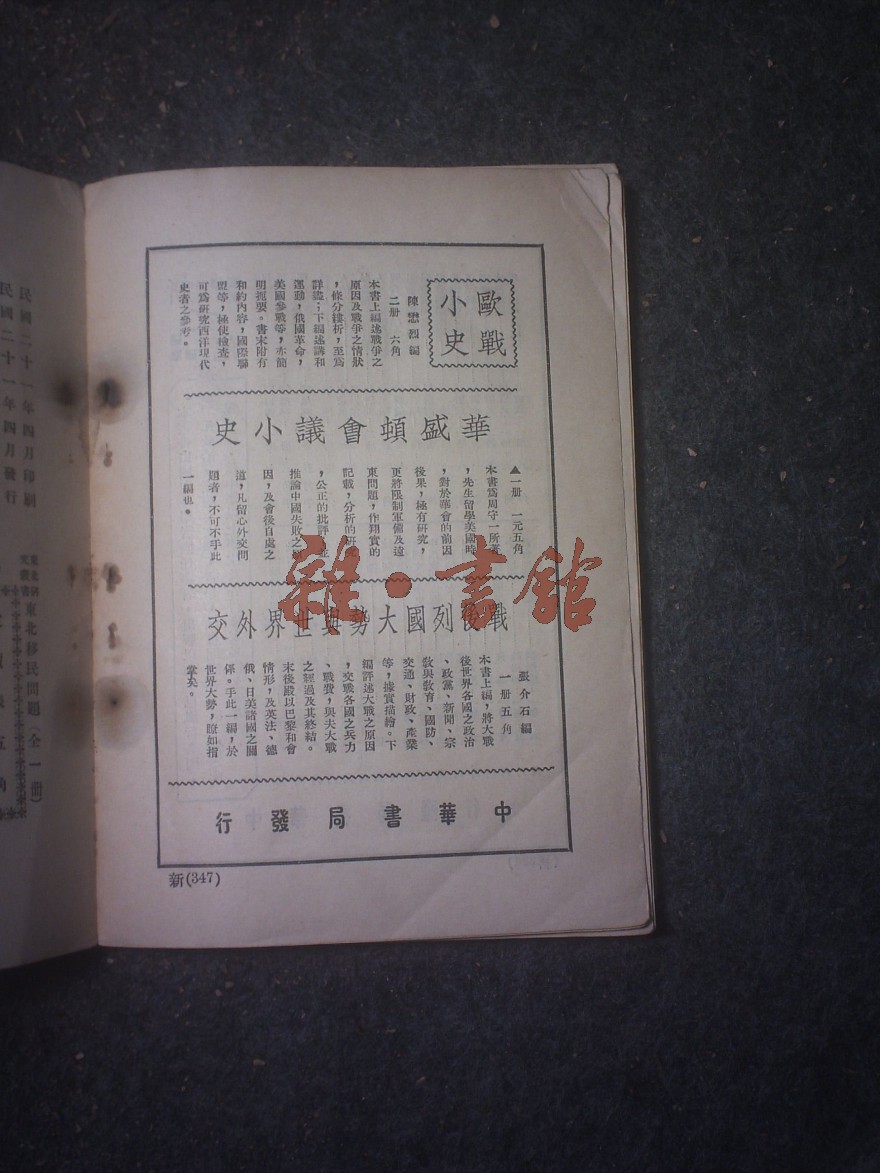 歐戰
小史
陳懋烈編
二册 六角
本書上編述戰爭之
原因及戰爭之情狀
，條分縷析，至爲
詳盡；下編述講和
運動，俄國革命，
美國參戰等，亦簡
明扼要。書末附有
和約內容，國際聯
盟等，極使檢查，
可爲研究西洋現代
史者之參考。
華盛頓會議小史
▲一册 一元五角
本書爲周守一所著
，先生留學美國時
，對於華會的前因
後果，極有研究，
更將限制軍備及遠
東問題，作翔實的
記載，分析的研究
，公正的批評，並
推論中國失敗之
因，及會後自處之
道，凡留心外交問
題者，不可不手此
一編也。
戰後列國大勢與世界外交
張介石編
一册五角
本書上編，將大戰
後世界各國之政治
、政黨、新聞、宗
敎與敎育、國防、
交通、財政、產業
等，據實描繪。下
編評述大戰之原因
，交戰各國之兵力
、戰費，與夫大戰
之經過及其終結。
末後殿以巴黎和會
情形，及英法、德
俄、日美諸國之關
係。手此一編，於
世界大勢，瞭如指
掌矣。
中華書局發行
新(347)
民國二十一年四月印刷
民國二十一年四月發行
東北移民問題（全一册）
雜·書館